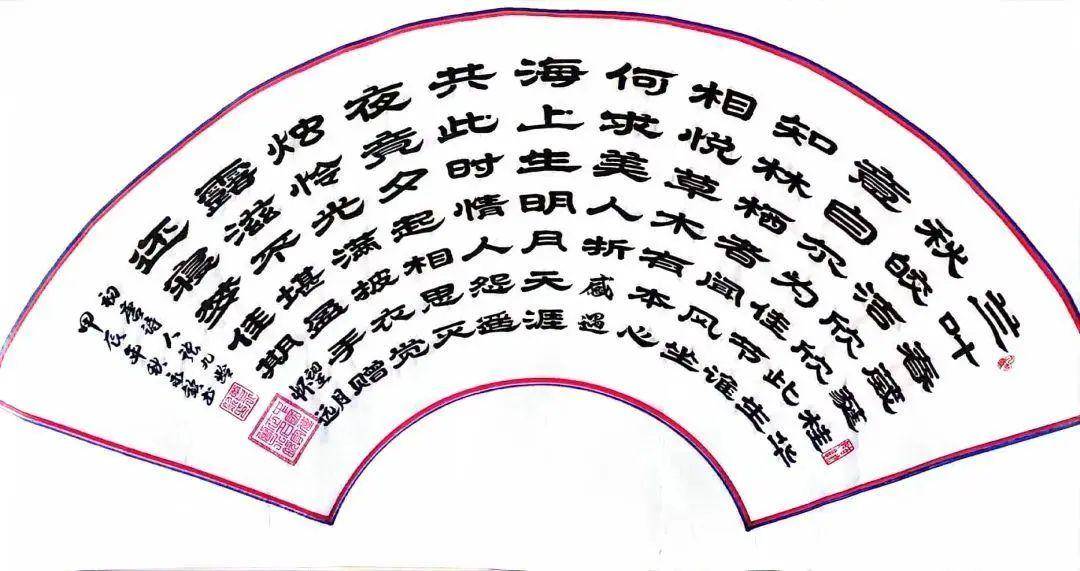 兰叶春葳蕤桂华
秋皎洁欣欣此生
意自尔为佳节谁
知林栖者闻风坐
相悦草木有本心
何求美人折 感遇
海上生明月天涯
共此时情人怨遥
夜竟夕起相思灭
烛怜光满披衣觉
露滋不堪盈手赠
还寝梦佳期 望月怀远
初唐诗人张九龄
甲辰年秋书